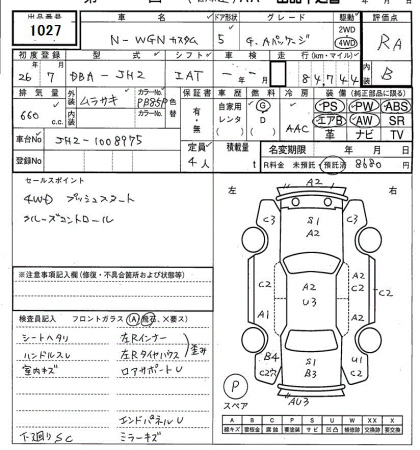 出品番号 車名 ドア形状 グレード 駆動 評価点
1027 N-WGN カスタム 5 G.Aパッケージ 2WD 4WD RA
初度登録 型式 シフト 車検 走行(km・マイル) 内装
26年7月 DBA-JH2 IAT - - 84744 B
排気量 外装 ムラサキ カラーNo. PB85P 色替 保証書 車歴 燃料 冷房 装備(純正部品に限る)
660 c.c. 内装 カラーNo. 有・無 自家用 レンタ G D AAC PS PW ABS
エアB AW SR
革 ナビ TV
車台No JH2-1008975 定員 4人 積載量 t 名変期限 年 月 日
登録No R料金 未預託・預託済 8680円
セールスポイント
4WD プッシュスタート
クルーズコントロール
※注意事項記入欄(修復・不具合箇所および状態等)
検査員記入 フロントガラス(A, 飛石, X要ス)
シートヘタリ 左Rインナー
ハンドルスレ 左Rタイヤハウス 歪み
室内キズ ロアサポートU
エンドパネルU
下廻りSC ミラーキズ
左 右
A2
C3 S1 C3
A2
C2 A2 A2 C2
U3
A1 C2
B4 S1 U1
C2穴 B3 C2
P
スペア AU3
A B C P S U W XX X
線キズ 要板金 腐蝕 要塗装 サビ 凹凸 補修跡 交換跡 要交換